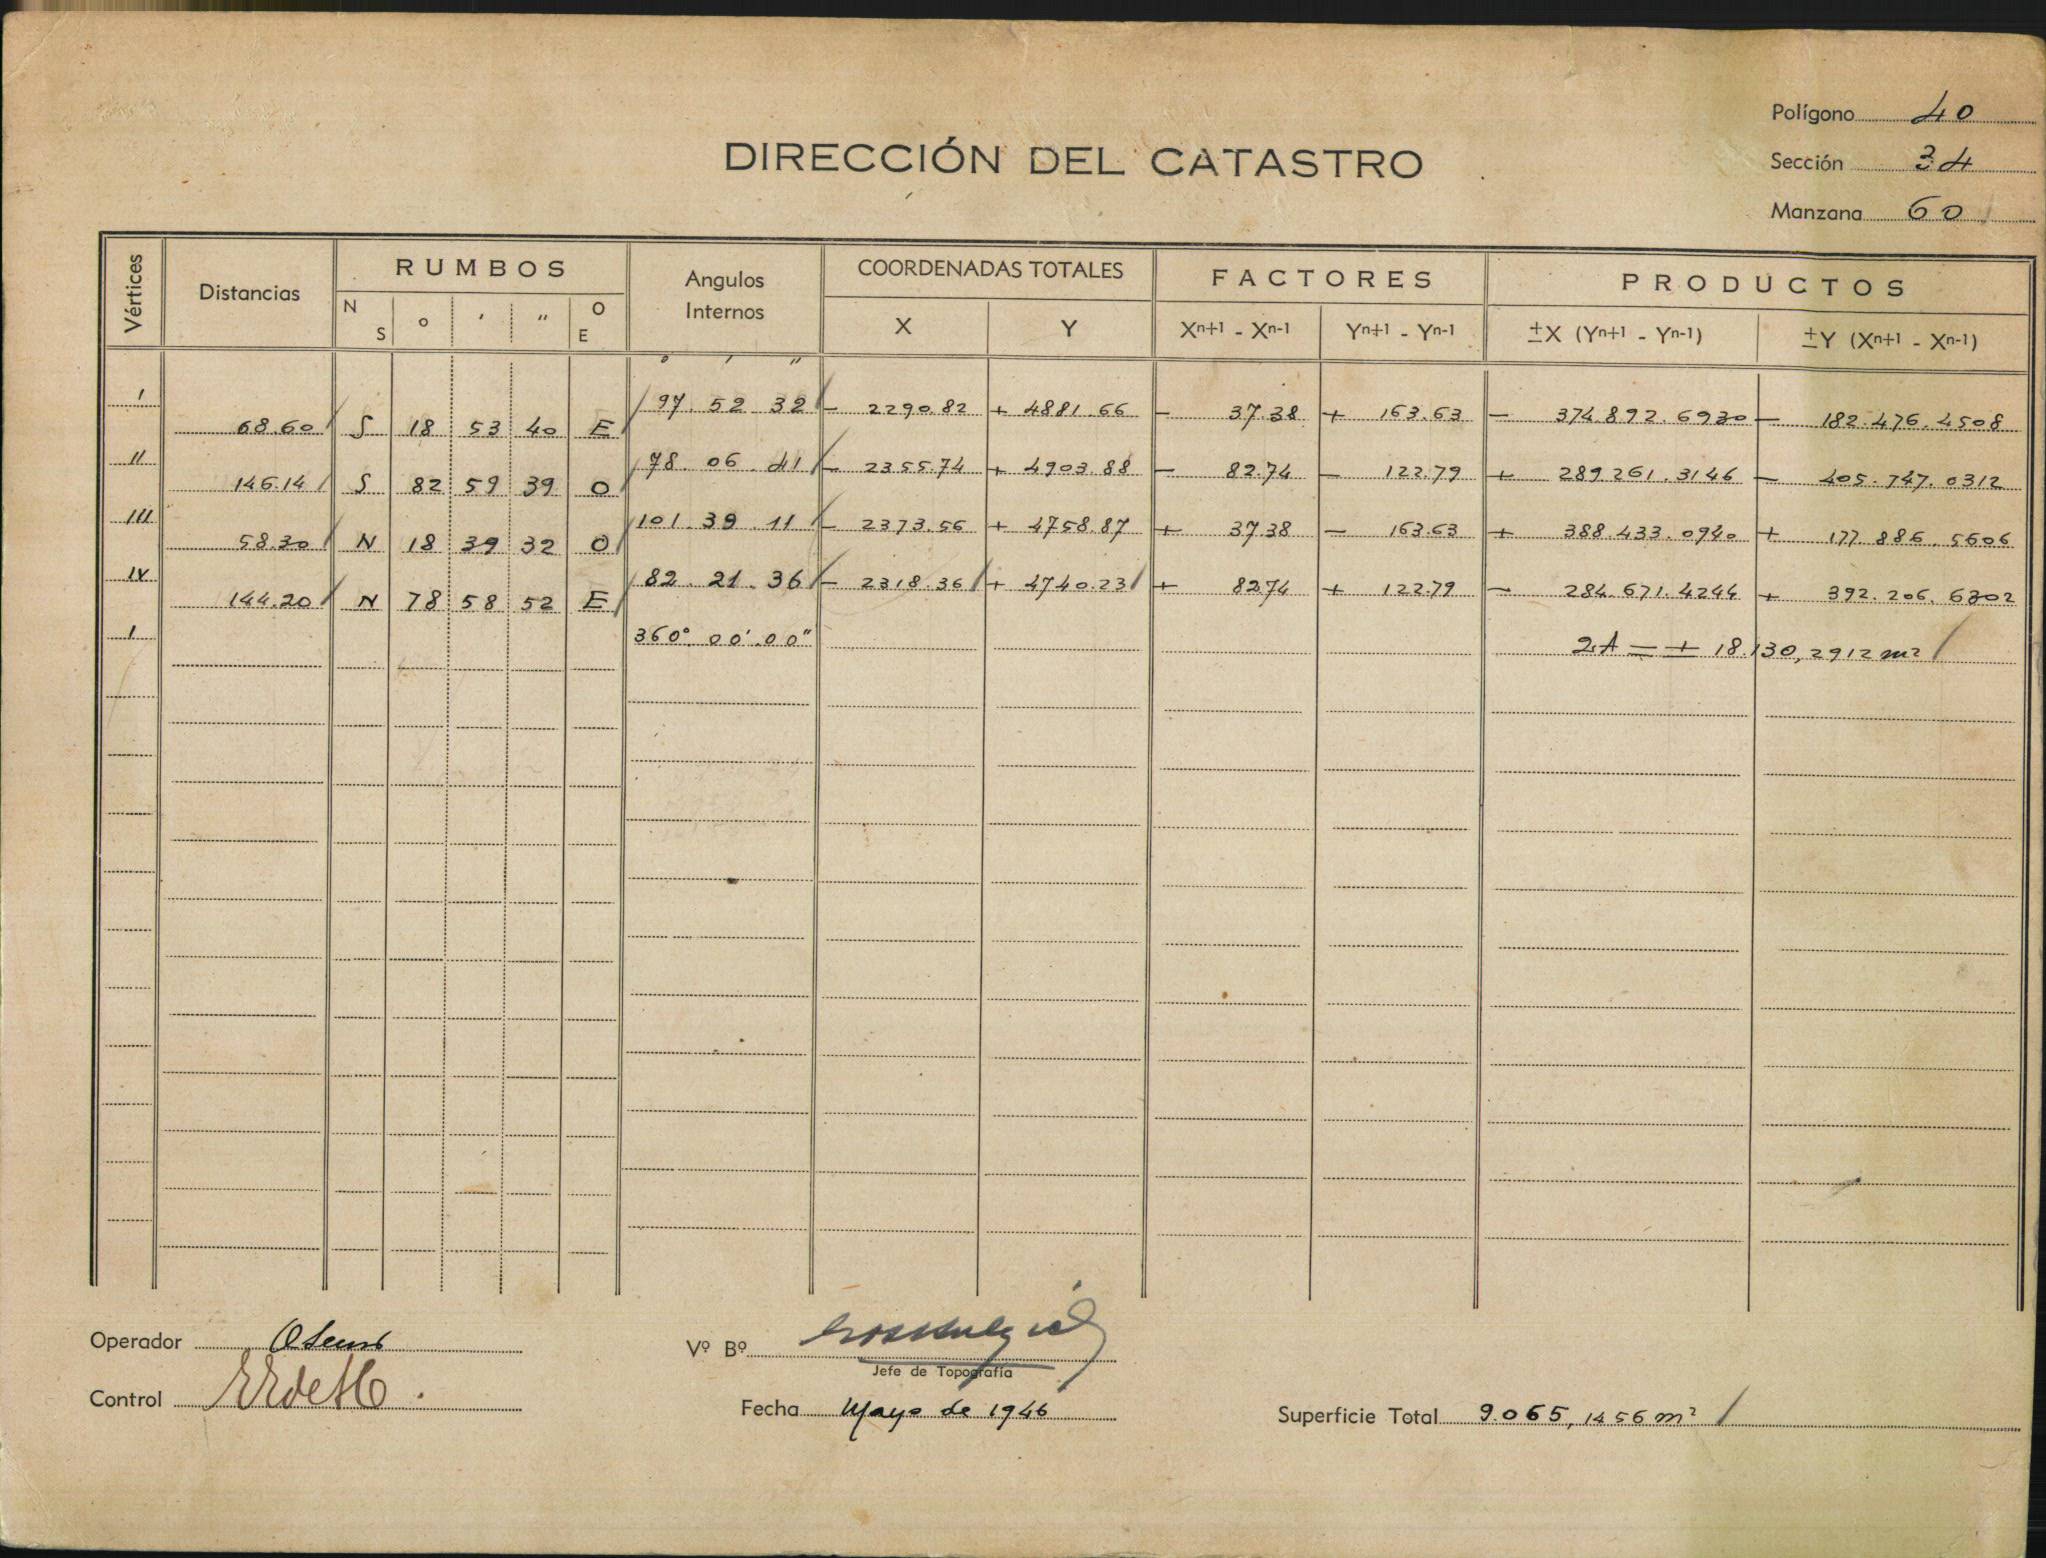 Polígono 40
DIRECCIÓN DEL CATASTRO
Sección 34
Manzana 60
Vértices Distancias RUMBOS Angulos Internos COORDENADAS TOTALES FACTORES PRODUCTOS
N S o ′ ″ O E X Y Xn+1 - Xn-1 Yn+1 - Yn-1 ±X (Yn+1 - Yn-1) ±Y (Xn+1 - Xn-1)
o ′ ″
I 97. 52 32 − 2290.82 + 4881.66 − 37.38 + 163.63 − 374.892.6930 − 182.476.4508
68.60 S 18 53 40 E
II 78. 06. 41 − 2355.74 + 4903.88 − 82.74 − 122.79 + 289.261.3146 − 405.747.0312
146.14 S 82 59 39 O
III 101. 39. 11 − 2373.56 + 4758.87 + 37.38 − 163.63 + 388.433.0940 + 177.886.5606
58.30 N 18 39 32 O
IV 82. 21. 36 − 2318.36 + 4740.23 + 82.74 + 122.79 − 284.671.4244 + 392.206.6302
144.20 N 78 58 52 E
I 360°.00′.00″ 2A = + 18.130,2912 m²
Operador
Vº Bº
Jefe de Topografía
Control
Fecha Mayo de 1946
Superficie Total 9.065,1456 m²